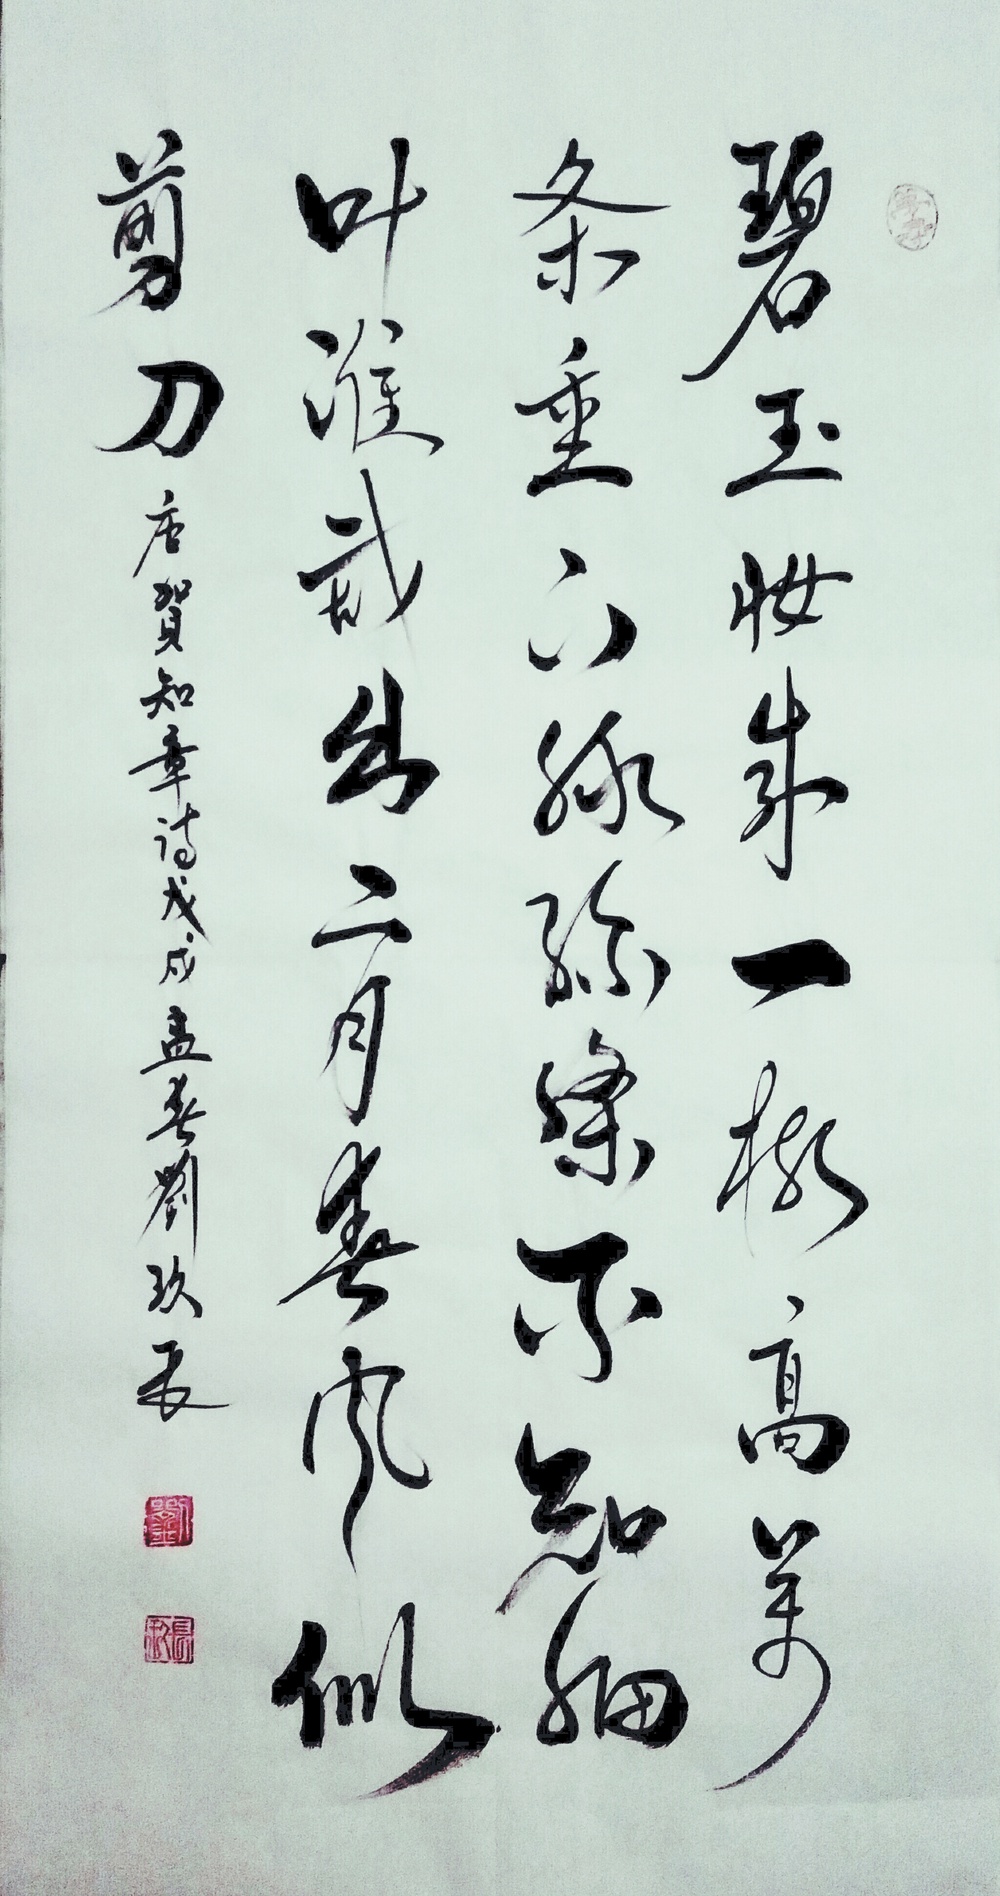 碧玉妆成一树高万
条垂下绿丝绦不知细
叶谁裁出二月春风似
剪刀 唐賀知章诗戊戌孟春劉玖長
劉
長玖